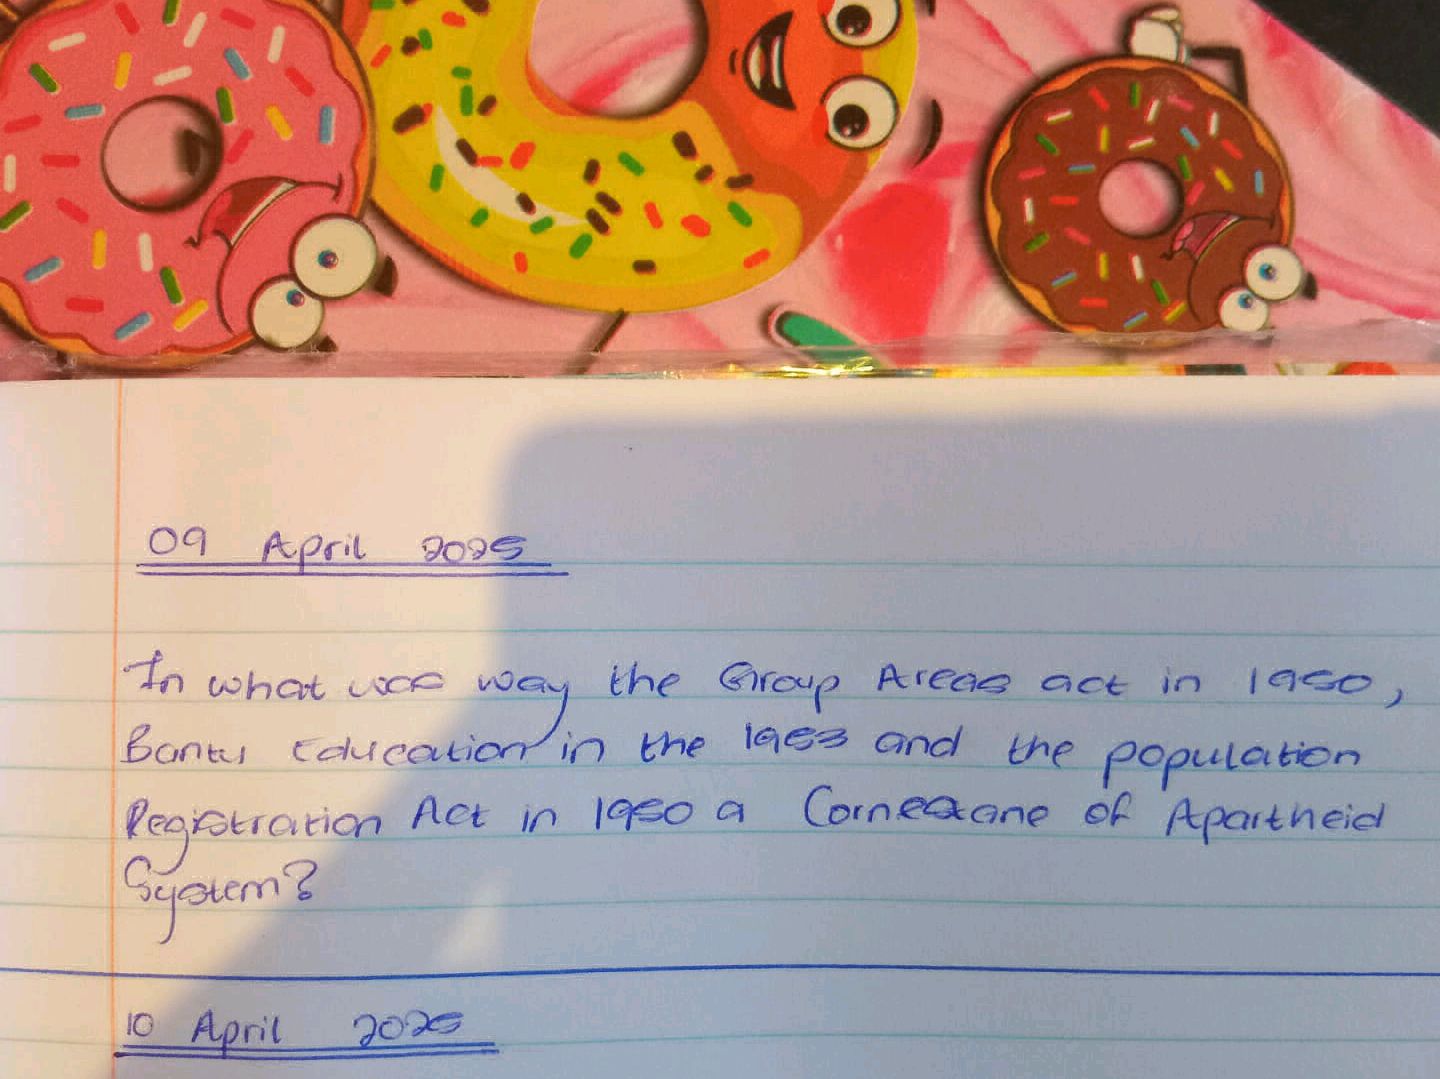 09 April 2025
In what was way the Group Areas act in 1950,
Bantu Education in the 1953 and the population
Registration Act in 1950 a Cornerstone of Apartheid
System?
10 April 2025